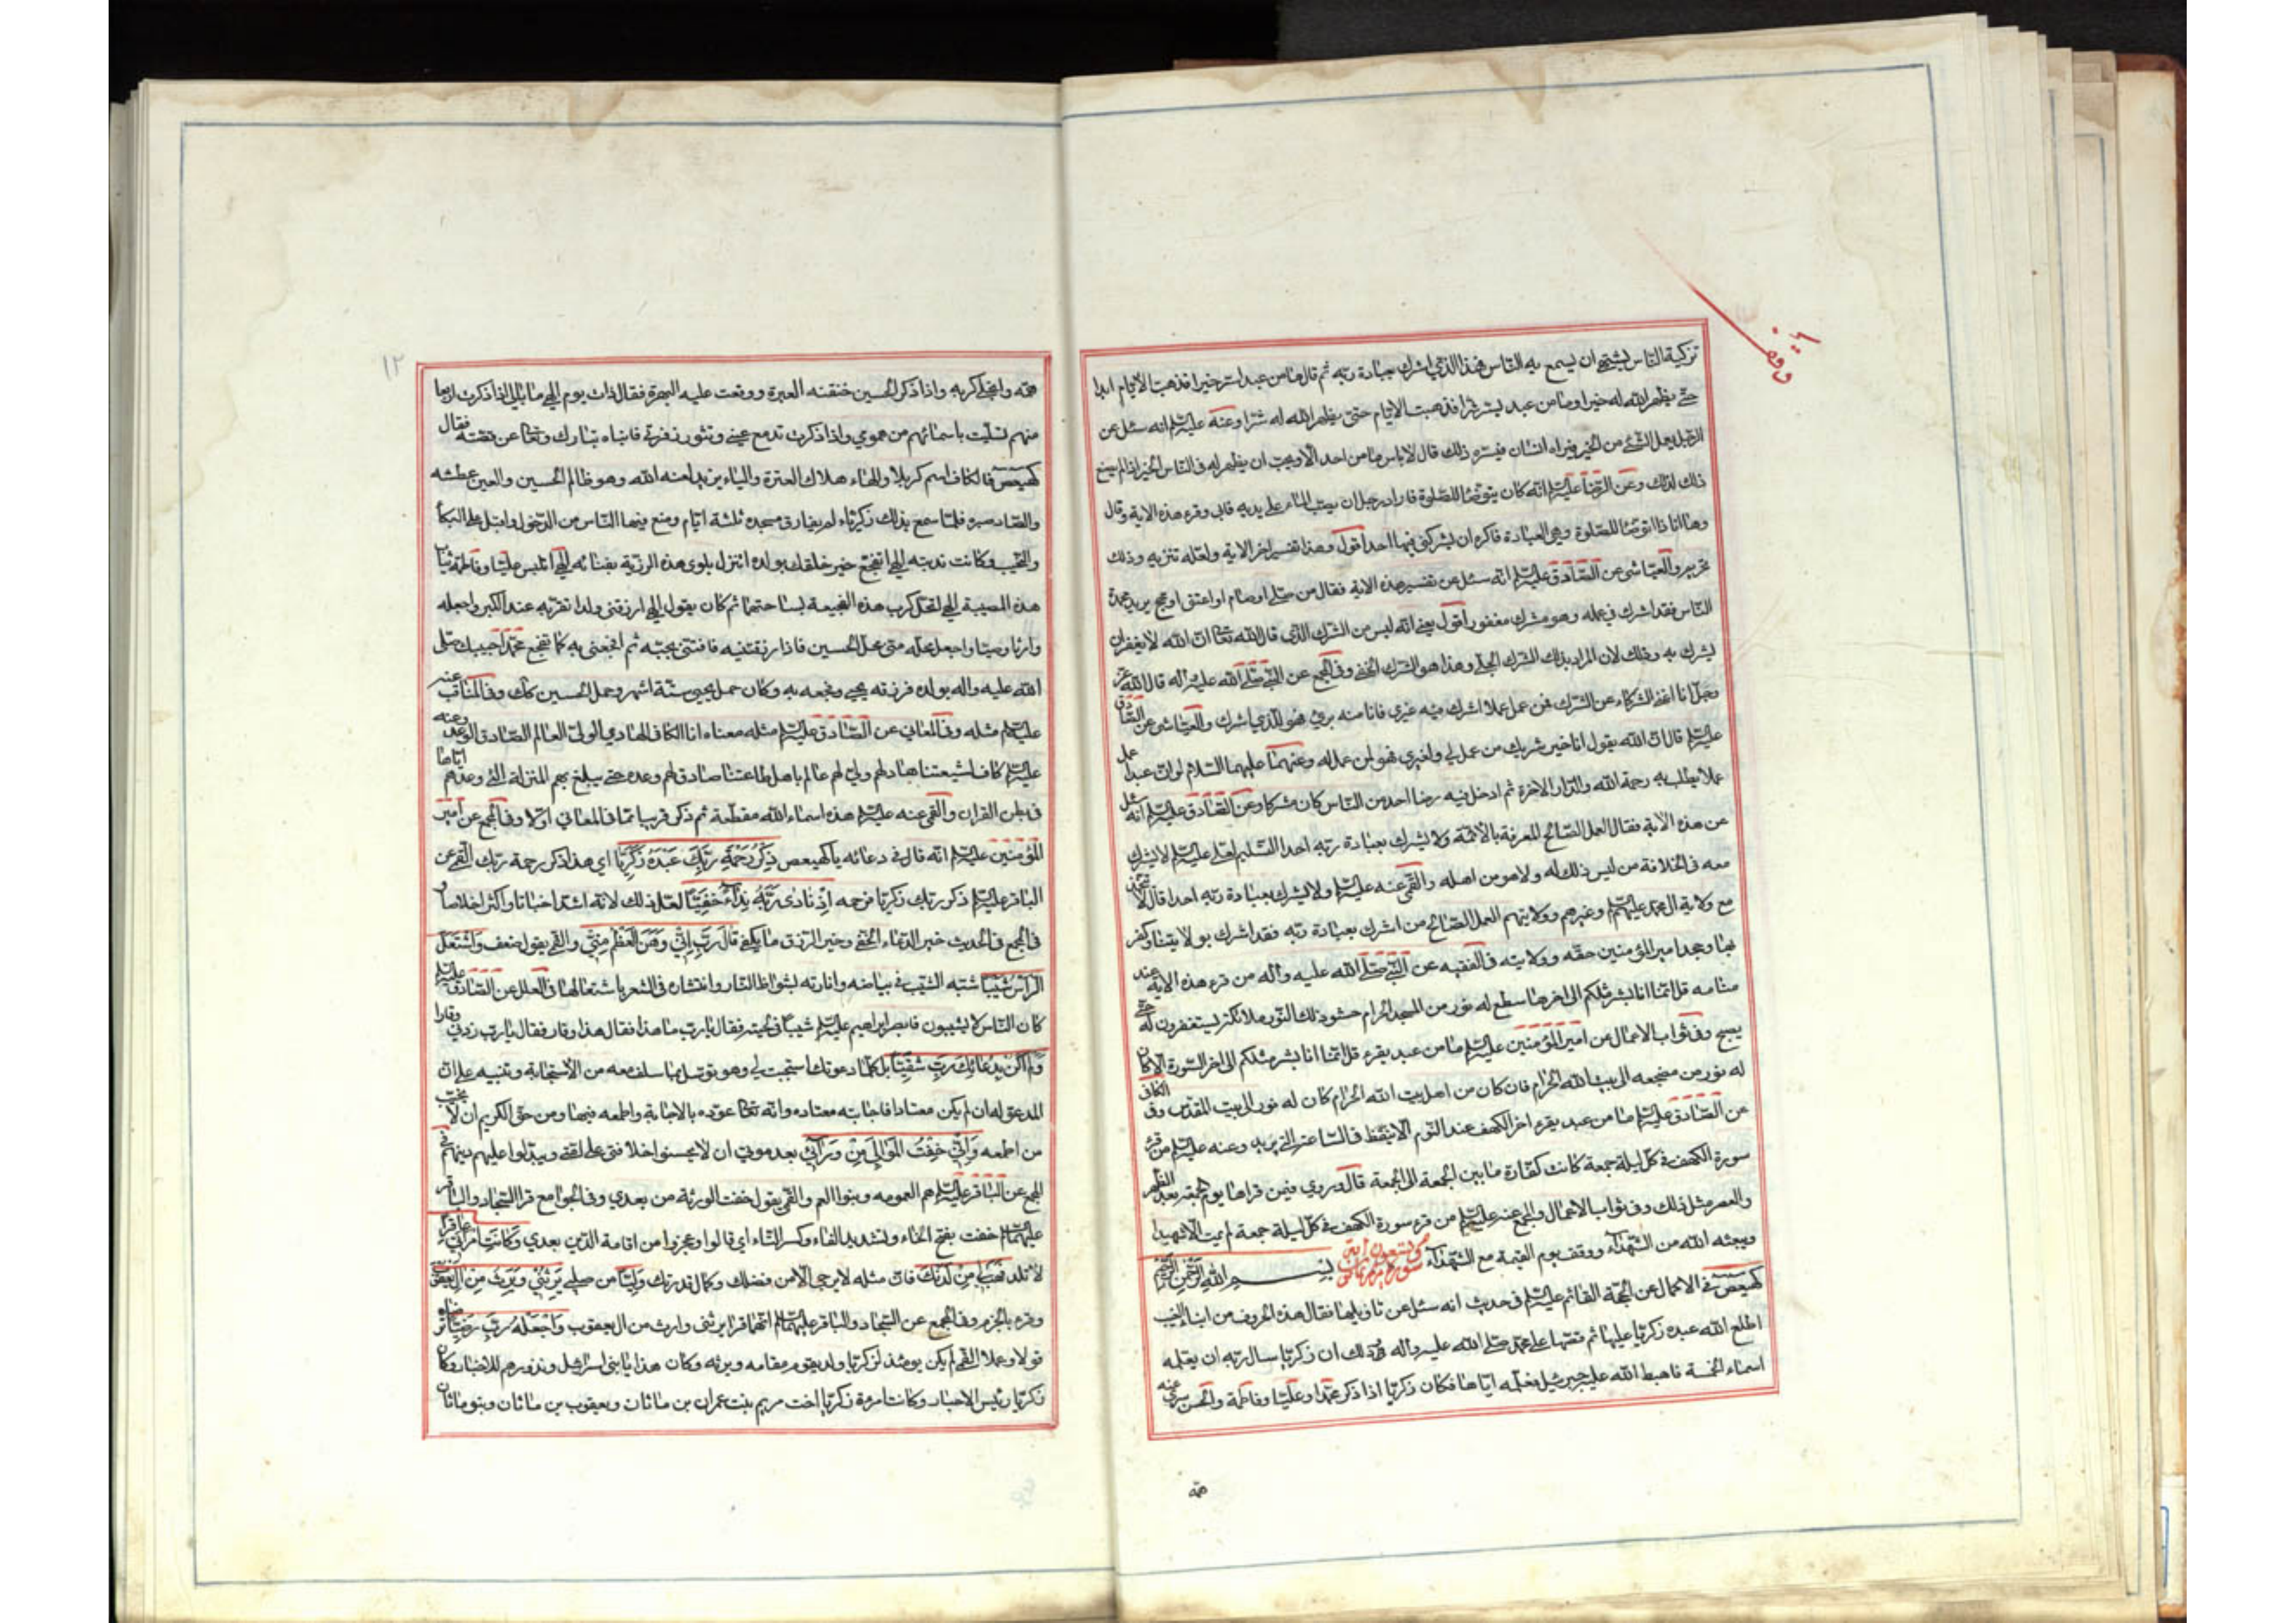 تزكية الناس يشتهى ان يسمع به الناس فهذا الذي اشرك بعبادة ربه ثم قال ما من عبد اسر خيرا فذهبت الايام ابدا
حتى يظهر الله له خيرا وما من عبد يسر شرا فذهبت الايام حتى يظهر الله له شرا وعنه عليه السلم انه سئل عن
الرجل يعمل الشئ من الخير فيراه انسان فيسره ذلك قال لا باس ما من احد الا ويحب ان يظهر له فى الناس الخير اذا لم يصنع
ذلك لذلك وعن الرضا عليه السلم انه كان يتوضا للصلوة فاراد رجل ان يصب الماء على يديه فابى وقرء هذه الاية وقال
وها انا ذا اتوضا للصلوة وهى العبادة فاكره ان يشركنى فيها احد اقول وهذا تفسير اخر للاية ولعله تنزيه وذلك
تحريم والعياشى عن الصادق عليه السلم انه سئل عن تفسير هذه الاية فقال من صلى او صام او اعتق او حج يريد محمدة
الناس فقد اشرك في عمله وهو مشرك مغفور اقول يعنى انه ليس من الشرك الذى قال الله تعالى ان الله لا يغفر ان
يشرك به وذلك لان المراد بذلك الشرك الجلى وهذا هو الشرك الخفى وفى المجمع عن النبى صلى الله عليه واله قال الله عز
وجل انا اغنى الشركاء عن الشرك فمن عمل عملا اشرك فيه غيرى فانا منه برئ فهو للذي اشرك والعياشى عن الصادق
عليه السلم قال ان الله يقول انا خير شريك من عمل لى ولغيرى فهو لمن عمله له وعنهما عليهما السلام لو ان عبدا عمل
عملا يطلب به رحمة الله والدار الاخرة ثم ادخل فيه رضا احد من الناس كان مشركا وعن الصادق عليه السلم انه سئل
عن هذه الاية فقال العمل الصالح المعرفة بالائمة ولا يشرك بعبادة ربه احدا التسليم لعلى عليه السلم لا يشرك
معه فى الخلافة من ليس ذلك له ولا هو من اهله والقمى عنه عليه السلم ولا يشرك بعبادة ربه احدا قال لا يتخذ
مع ولاية ال محمد عليهم السلم وغيرهم وولايتهم العمل الصالح من اشرك بعبادة ربه فقد اشرك بولايتنا وكفر
بها وجحد امير المؤمنين حقه وولايته فى الفقيه عن النبى صلى الله عليه واله من قرء هذه الاية عند
منامه قل انما انا بشر مثلكم الى اخرها سطع له نور من المسجد الحرام حشو ذلك النور ملائكة يستغفرون له حتى
يصبح وفى ثواب الاعمال عن امير المؤمنين عليه السلم ما من عبد يقرء قل انما انا بشر مثلكم الى اخر السورة الا كان
له نور من مضجعه الى بيت الله الحرام فان كان من اهل بيت الله الحرام كان له نور الى بيت المقدس وفى الكافى
عن الصادق عليه السلم ما من عبد يقرء اخر الكهف عند النوم الا تيقظ فى الساعة التى يريد وعنه عليه السلم من قرء
سورة الكهف فى كل ليلة جمعة كانت كفارة ما بين الجمعة الى الجمعة قال وروي فيمن قراها يوم الجمعة بعد الظهر
والعصر مثل ذلك وفى ثواب الاعمال والمجمع عنه عليه السلم من قرء سورة الكهف فى كل ليلة جمعة لم يمت الا شهيدا
ويبعثه الله من الشهداء ووقف يوم القيمة مع الشهداء سورة مريم بسم الله الرحمن الرحيم
كهيعص فى الاكمال عن الحجة القائم عليه السلم فى حديث انه سئل عن تاويلها فقال هذه الحروف من انباء الغيب
اطلع الله عبده زكريا عليها ثم قصها على محمد صلى الله عليه واله وذلك ان زكريا سال ربه ان يعلمه
اسماء الخمسة فاهبط الله عليه جبرئيل فعلمه اياها فكان زكريا اذا ذكر محمدا وعليا وفاطمة والحسن سرى عنه
همه
وقف
١٢
همه وانجلى كربه واذا ذكر الحسين خنقته العبرة ووقعت عليه البهرة فقال ذات يوم الهي ما بالى اذا ذكرت اربعا
منهم تسليت باسمائهم من همومي واذا ذكرت تدمع عينى وتثور زفرتى فانباه تبارك وتعالى عن قصته فقال
كهيعص فالكاف اسم كربلا والهاء هلاك العترة والياء يزيد لعنه الله وهو ظالم الحسين والعين عطشه
والصاد صبره فلما سمع بذلك زكرياء لم يفارق مسجده ثلثة ايام ومنع فيها الناس من الدخول واقبل على البكاء
والنحيب وكانت ندبته الهى اتفجع خير خلقك بولده اتنزل بلوى هذه الرزية بفنائه الهى اتلبس عليا وفاطمة ثياب
هذه المصيبة الهى اتحل كرب هذه الفجيعة بساحتهما ثم كان يقول الهى ارزقنى ولدا تقر به عند الكبر واجعله
وارثا وصيا واجعل محله منى محل الحسين فاذا رزقتنيه فافتنى بحبه ثم افجعنى به كما تفجع محمدا حبيبك صلى
الله عليه واله بولده فرزقه يحيى وفجعه به وكان حمل يحيى ستة اشهر وحمل الحسين كذلك وفى المناقب عنه
عليه السلم مثله وفى المعانى عن الصادق عليه السلم مثله معناه انا الكاف الهادي الولى العالم الصادق الوعد وعنه
عليه السلم كاف لشيعتنا هاد لهم ولى لهم عالم باهل طاعتنا صادق لهم وعده حتى يبلغ بهم المنزلة التى وعدهم اياها
فى بطن القران والقمى عنه عليه السلم هذه اسماء الله مقطعة ثم ذكر قريبا مما فى المعانى اولا وفى المجمع عن امير
المؤمنين عليه السلم انه قال فى دعائه يا كهيعص ذكر رحمة ربك عبده زكريا اي هذا ذكر رحمة ربك القمى عن
الباقر عليه السلم ذكر ربك زكريا فرحمه اذ نادى ربه نداء خفيا لعل ذلك لانه اشد اخباتا واكثر اخلاصا و
فى المجمع فى الحديث خير الدعاء الخفى وخير الرزق ما يكفى قال رب انى وهن العظم منى والقمى يقول ضعف واشتعل
الراس شيبا شبه الشيب فى بياضه وانارته بشواظ النار وانتشاره فى الشعر باشتعالها فى العلل عن الصادق عليه السلم
كان الناس لا يشيبون فابصر ابراهيم عليه السلم شيبا فى لحيته فقال يا رب ما هذا فقال هذا وقار فقال يا رب زدنى وقارا
ولم اكن بدعائك رب شقيا بل كلما دعوتك استجبت لي وهو توسل بما سلف معه من الاستجابة وتنبيه على ان
المدعو له ان لم يكن معتادا فاجابته معتاده وانه تعالى عوده بالاجابة واطمعه فيها ومن حق الكريم ان لا يخيب
من اطمعه وانى خفت الموالى من ورائى بعد موتى ان لا يحسنوا خلافتى على امتى ويبدلوا عليهم دينهم فى
المجمع عن الباقر عليه السلم هم العمومه وبنو العم والقمى يقول خفت الورثة من بعدي وفى الجوامع قرا السجاد والباقر
عليهما السلم خفت بفتح الخاء وتشديد الفاء وكسر التاء اي قالوا وعجزوا من اقامة الدين بعدي وكانت امراتى عاقرا
لا تلد فهب لى من لدنك فان مثله لا يرجى الا من فضلك وكمال قدرتك وليا من صلبى يرثنى ويرث من ال يعقوب
وقرء بالجزم وفى المجمع عن السجاد والباقر عليهما السلم انهما قرا يرثنى وارث من ال يعقوب واجعله رب رضيا ترضاه
قولا وعملا القمى لم يكن يومئذ لزكريا ولد يقوم مقامه ويرثه وكان هدايا بنى اسرائيل ونذورهم للاحبار وكان
زكريا رئيس الاحبار وكانت امرءة زكريا اخت مريم بنت عمران بن ماثان ويعقوب بن ماثان وبنو ماثان